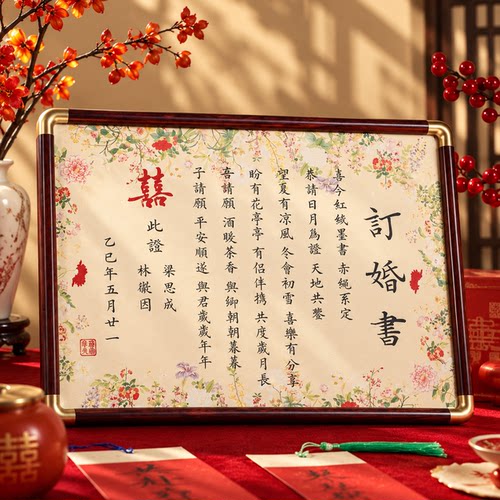 訂婚書
喜今紅紙墨書 赤繩系定
恭請日月爲證 天地共鑒
望夏有涼風 冬會初雪 喜樂有分享
盼有花亭亭 有侶伴攜 共度歲月長
吾請願 酒暖茶香 與卿朝朝暮暮
子請願 平安順遂 與君歲歲年年
囍
此證
梁思成
林徽因
乙巳年五月廿一
囍